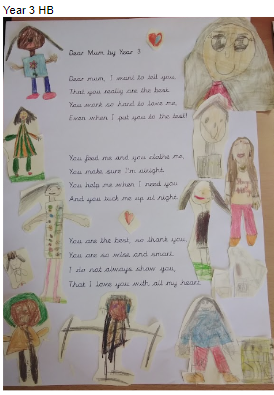 Year 3 HB
Dear Mum by Year 3
Dear mum, I want to tell you,
That you really are the best.
You work so hard to love me,
Even when I put you to the test!
You feed me and you clothe me,
You make sure I'm alright.
You help me when I need you
And you tuck me up at night.
You are the best, so thank you,
You are so wise and smart.
I do not always show you,
That I love you with all my heart.